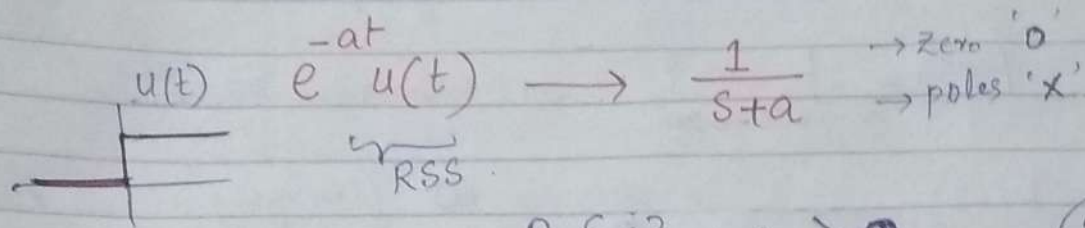 u(t) e^{-at} u(t) → 1/(s+a) → zero 'o'
→ poles 'x'
RSS